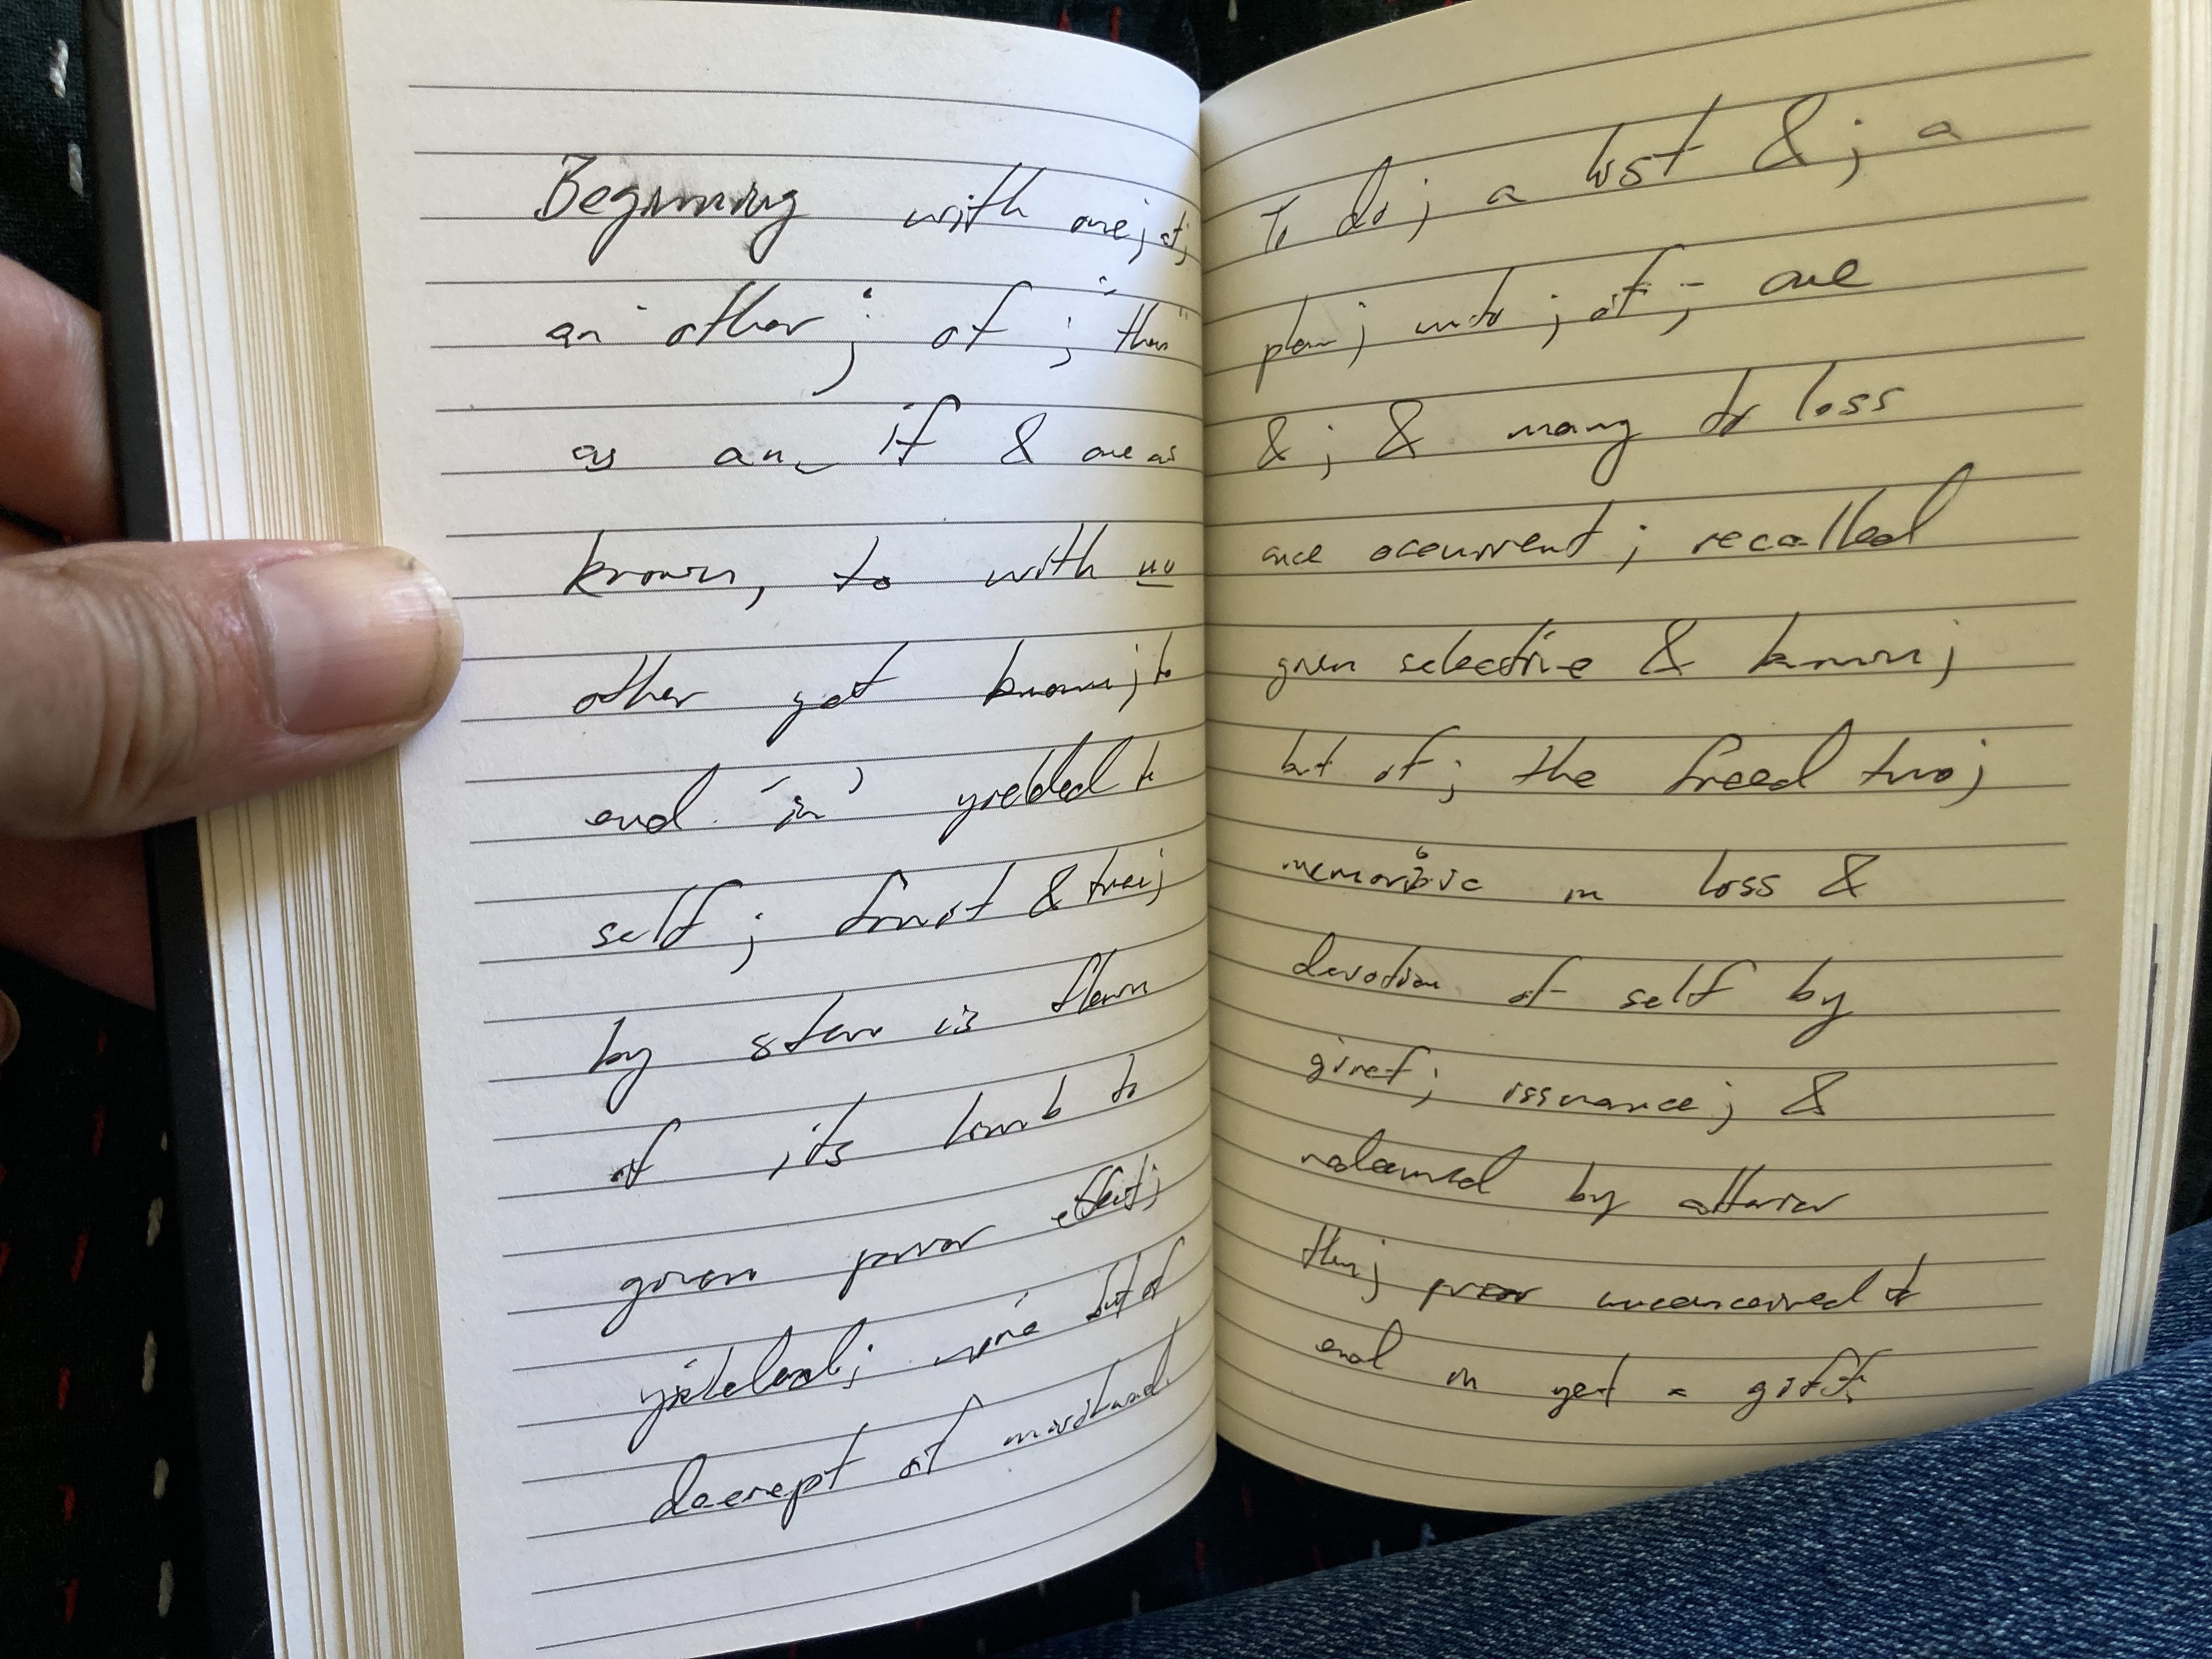 Beginning with one; of;
an other; of; then
as an if & one as
known, to with no
other yet known; to
end 'in' yielded to
self; & tree;
by stem is
of its limb to
given prior effect;
yielded; but of
of
To do; a lost &; a
plan; unto; of; one
&; & many to loss
once ocurrent; recalled
given selective & known;
but of; the freed two;
in loss &
devotion of self by
issuance; &
redeemed by
prior unconceived to
end in yet a gift.